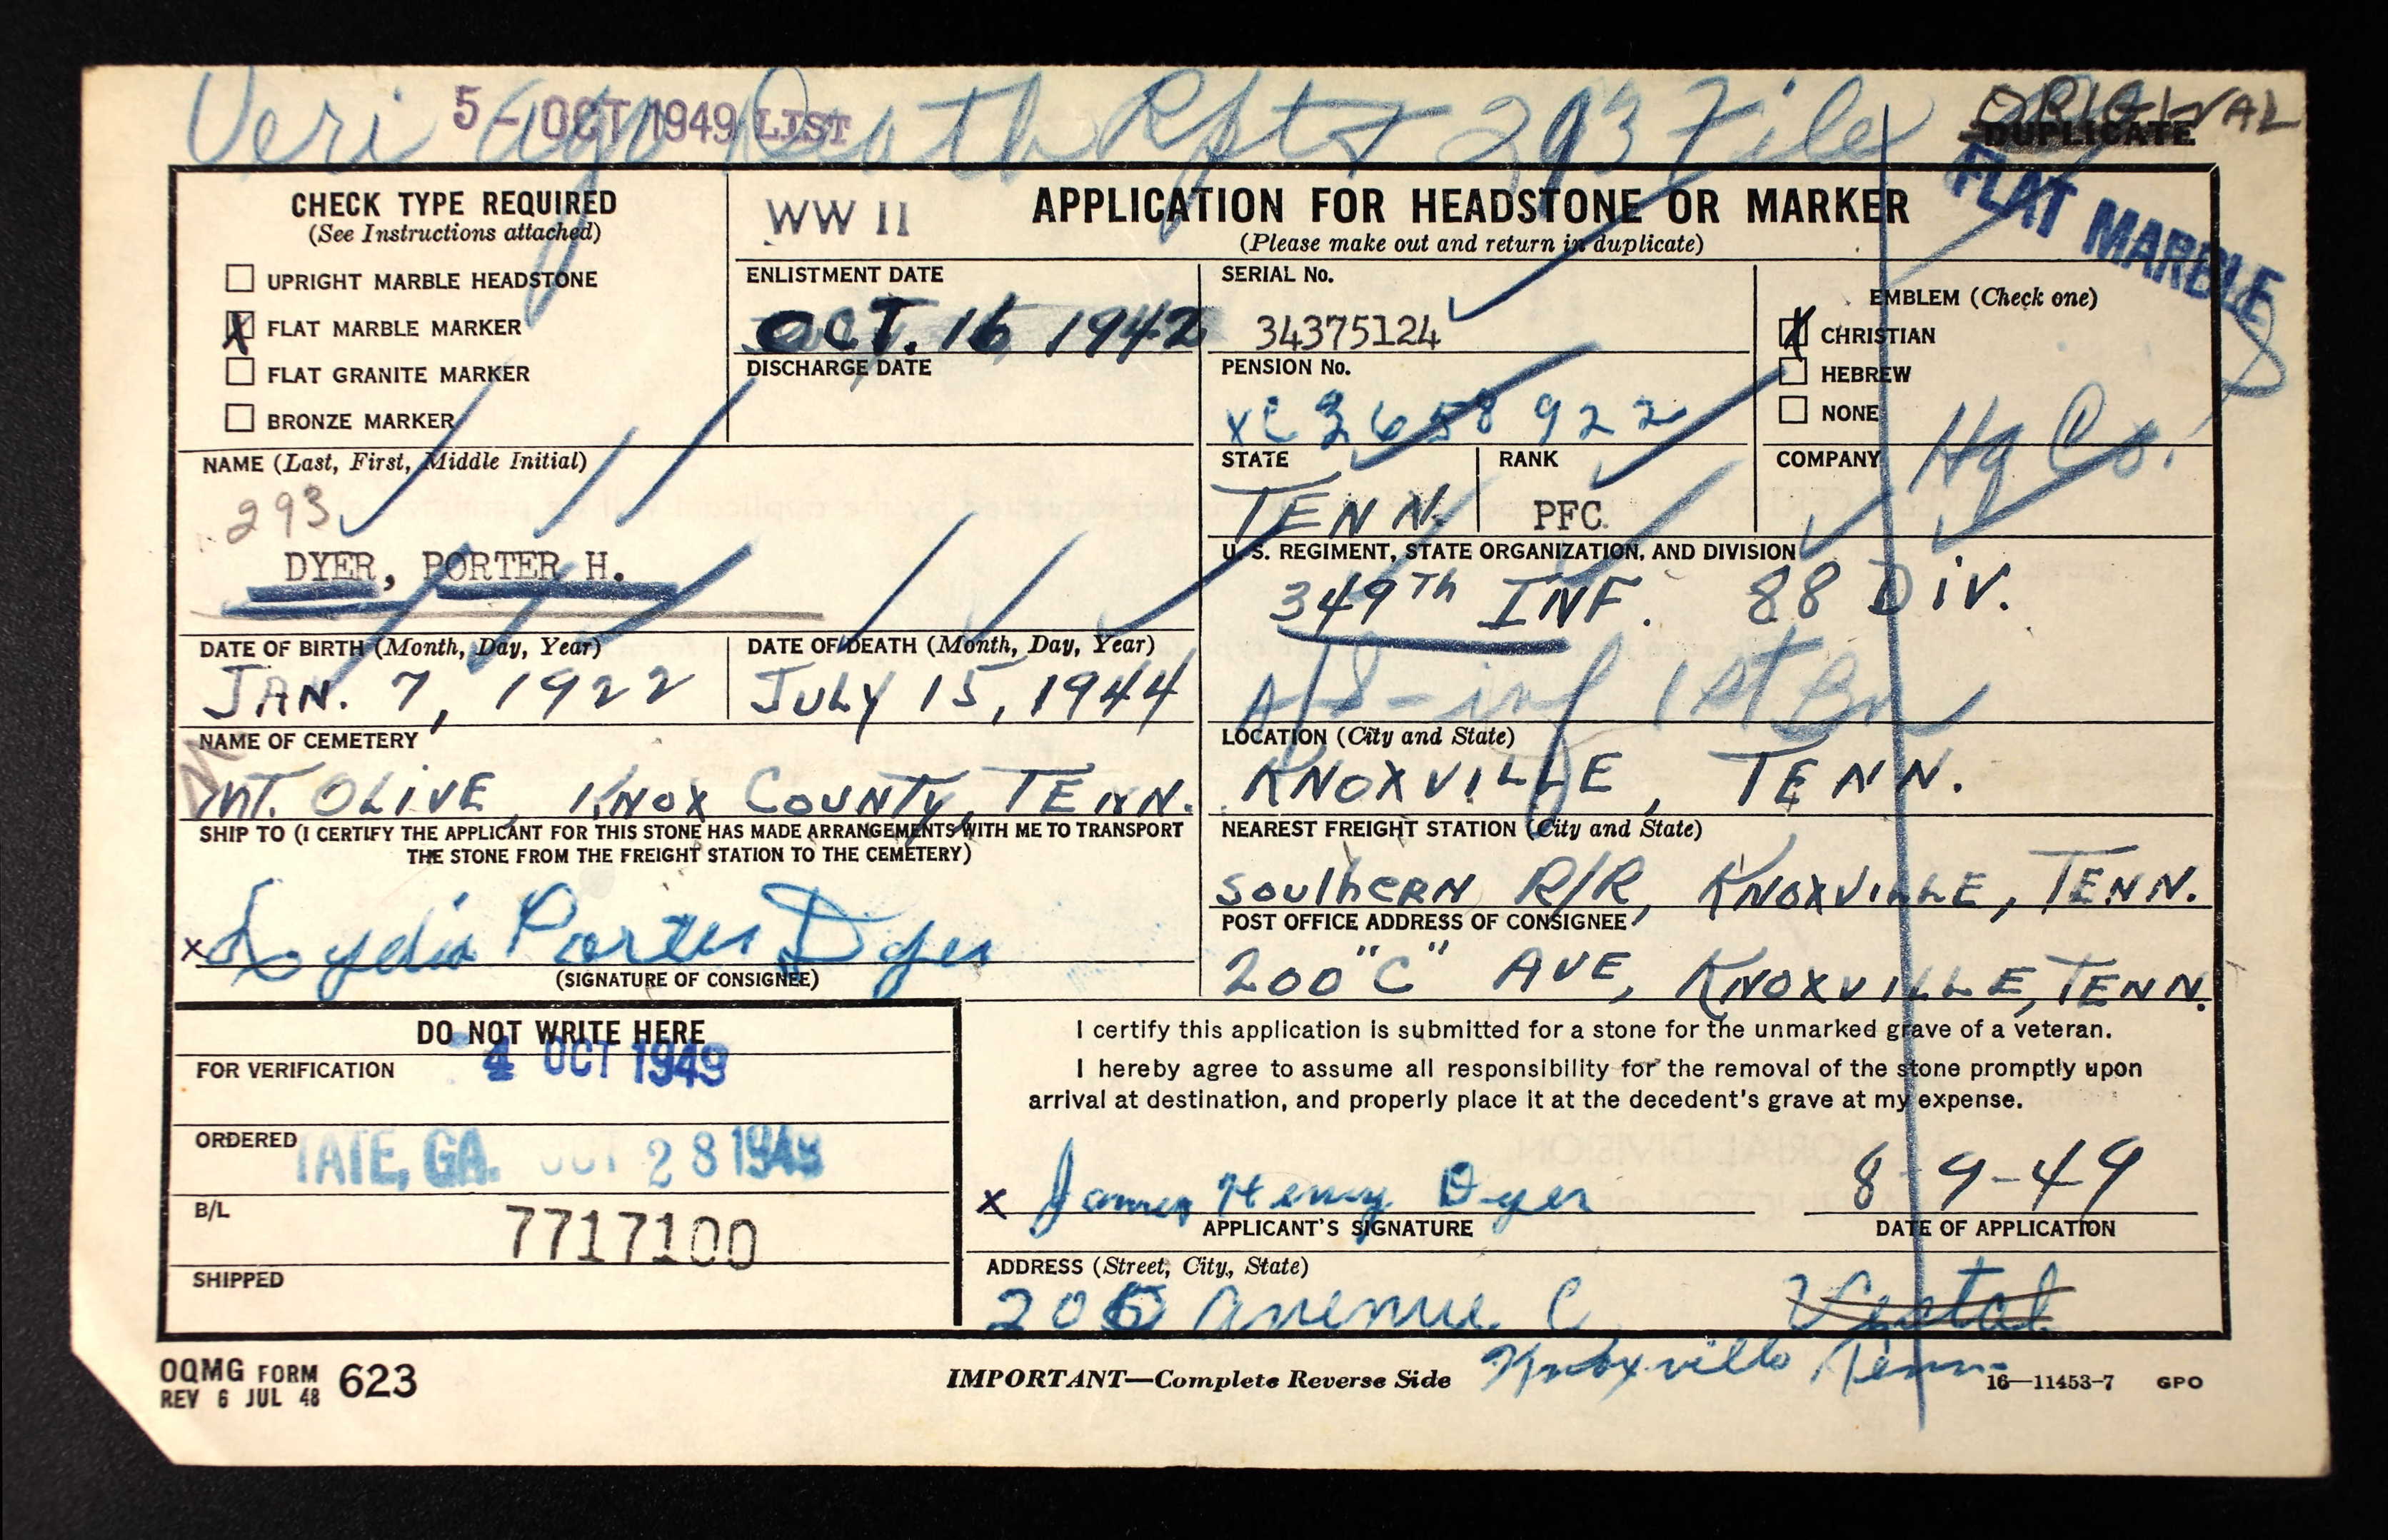 Veri Ago Death Rpts 293 File
5 - OCT 1949 LIST
ORIGINAL
DUPLICATE
FLAT MARBLE
CHECK TYPE REQUIRED
(See Instructions attached)
UPRIGHT MARBLE HEADSTONE
X FLAT MARBLE MARKER
FLAT GRANITE MARKER
BRONZE MARKER
WW II
APPLICATION FOR HEADSTONE OR MARKER
(Please make out and return in duplicate)
ENLISTMENT DATE
OCT. 16 1942
DISCHARGE DATE
SERIAL No.
34375124
PENSION No.
XC 3658922
EMBLEM (Check one)
X CHRISTIAN
HEBREW
NONE
NAME (Last, First, Middle Initial)
293
DYER, PORTER H.
STATE
TENN.
RANK
PFC.
COMPANY
Hq Co.
U. S. REGIMENT, STATE ORGANIZATION, AND DIVISION
349Th INF. 88 DIV.
1st Bn
DATE OF BIRTH (Month, Day, Year)
JAN. 7, 1922
DATE OF DEATH (Month, Day, Year)
JULY 15, 1944
NAME OF CEMETERY
MT. OLIVE, KNOX COUNTY, TENN.
LOCATION (City and State)
KNOXVILLE, TENN.
SHIP TO (I CERTIFY THE APPLICANT FOR THIS STONE HAS MADE ARRANGEMENTS WITH ME TO TRANSPORT
THE STONE FROM THE FREIGHT STATION TO THE CEMETERY)
x Lydia Porter Dyer
(SIGNATURE OF CONSIGNEE)
NEAREST FREIGHT STATION (City and State)
SOUTHERN R/R, KNOXVILLE, TENN.
POST OFFICE ADDRESS OF CONSIGNEE
200 "C" AVE, KNOXVILLE, TENN.
DO NOT WRITE HERE
FOR VERIFICATION
4 OCT 1949
ORDERED
TATE, GA. OCT 28 1949
B/L
7717100
SHIPPED
I certify this application is submitted for a stone for the unmarked grave of a veteran.
I hereby agree to assume all responsibility for the removal of the stone promptly upon
arrival at destination, and properly place it at the decedent's grave at my expense.
x James Henry Dyer
8-9-49
APPLICANT'S SIGNATURE
DATE OF APPLICATION
ADDRESS (Street, City, State)
200 Avenue C Vestal
Knoxville Tenn
OQMG FORM 623
REV 6 JUL 48
IMPORTANT—Complete Reverse Side
16—11453-7 GPO